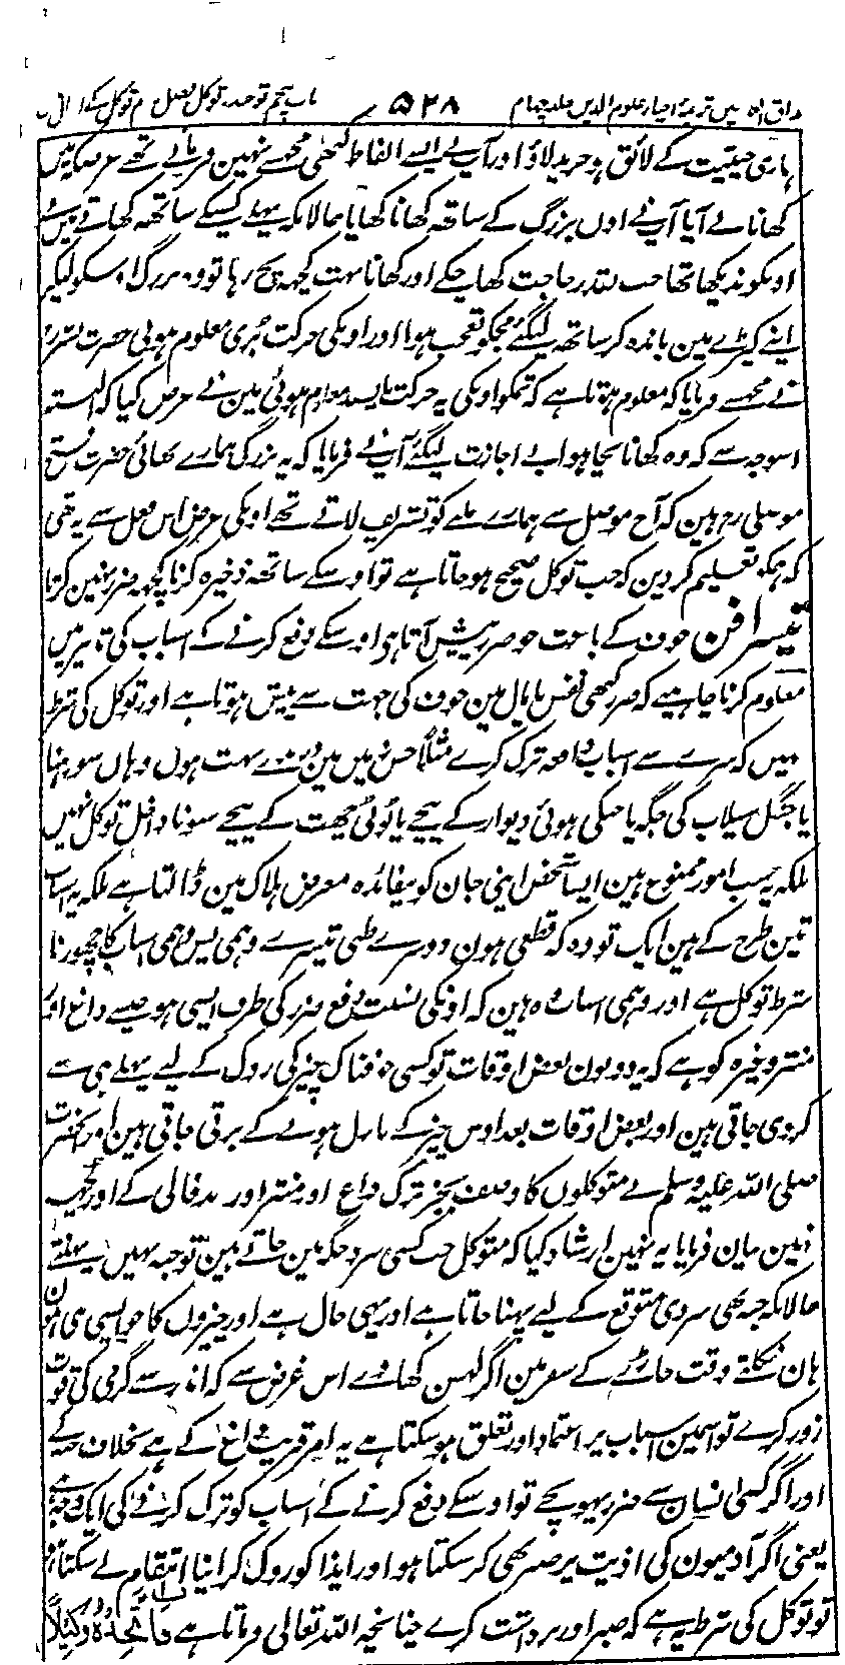 مذاق العارفین ترجمۂ احیاء علوم الدین جلد چہارم ۵۲۸ باب پنجم توحید و توکل فصل
ہماری حیثیت کے لائق ہو خرید لاؤ اور آپ نے ایسے الفاظ کبھی مجھسے نہین فرمائے تھے غرضکہ مین
کھانا لے آیا آپ نے اون بزرگ کے ساتھ کھانا کھایا حالانکہ پہلے کسیکے ساتھ کھاتے مین نے
اونکو ندیکھا تھا جب بقدر حاجت کھا چکے اور کھانا بہت کچھ بچ رہا تو وہ بزرگ اوسکو لیکر
اپنے کپڑے مین باندہ کر ساتھ لیگئے مجکو تعجب ہوا اور اونکی حرکت بُری معلوم ہوئی حضرت بشر رح
نے مجھسے فرمایا کہ معلوم ہوتا ہے کہ تمکو اونکی یہ حرکت ناپسند معلوم ہوئی مین نے عرض کیا کہ البتہ
اسوجہ سے کہ وہ کھانا بچا ہوا بے اجازت لیگئے آپ نے فرمایا کہ یہ بزرگ ہمارے بھائی حضرت فتح
موصلی رح ہین کہ آج موصل سے ہمارے ملنے کو تشریف لائے تھے اونکی غرض اس فعل سے یہ تھی
کہ ہمکو تعلیم کردین کہ جب توکل صحیح ہوجاتا ہے تو اوسکے ساتھ ذخیرہ کرنا کچھ ضرر نہین کرتا
تیسرا فن خوف کے باعث جو ضرر پیش آتا ہی اوسکے دفع کرنے کے اسباب کی تدبیر مین
معلوم کرنا چاہیے کہ ضرر کبھی نفس یا مال مین خوف کی جہت سے پیش ہوتا ہے اور توکل کی شرط
نہیں کہ سرے سے اسباب دافعہ ترک کرے مثلاً جس زمین مین درندے بہت ہون وہان سو رہنا
یا جنگل سیلاب کی جگہ یا جھکی ہوئی دیوار کے نیچے یا ٹوٹی چھت کے نیچے سونا داخل توکل نہین
بلکہ یہ سب امور ممنوع ہین ایسا شخص اپنی جان کو بیفائدہ معرض ہلاک مین ڈالتا ہے بلکہ یہ اسباب
تین طرح کے ہین ایک تو وہ کہ قطعی ہون دوسرے ظنی تیسرے وہمی پس وہمی اسباب کا چھوڑنا
شرط توکل ہے اور وہمی اسباب وہ ہین کہ اونکی نسبت دفع ضرر کی طرف ایسی ہو جیسے داغ اور
منتر وغیرہ کو ہے کہ یہ دونون بعض اوقات تو کسی خوفناک چیز کی روک کے لیے پہلے ہی سے
کردی جاتی ہین اور بعض اوقات بعد اوس چیز کے نازل ہونے کے برتی جاتی ہین اور آنحضرت
صلی اللہ علیہ وسلم نے متوکلون کا وصف بجز ترک داغ اور منتر اور بدفالی کے اور کچھ
نہین بیان فرمایا یہ نہین ارشاد کیا کہ متوکل جب کسی سرد جگہ مین جاتے ہین تو جبہ نہین پہنتے
حالانکہ جبہ بھی سردی متوقع کے لیے پہنا جاتا ہے اور یہی حال ہے اور چیزون کا جو ایسی ہی ہون
ہان نکلتے وقت جاڑے کے سفر مین اگر لہسن کھاوے اس غرض سے کہ اندر سے گرمی کی قوت
زور کرے تو اسمین اسباب پر اعتماد اور تعلق ہوسکتا ہے یہ امر قریب داغ کے ہے بخلاف جبہ کے
اور اگر کسی انسان سے ضرر پہونچے تو اوسکے دفع کرنے کے اسباب کو ترک کرنے کی ایک وجہ ہے
یعنی اگر آدمیون کی اذیت پر صبر بھی کرسکتا ہو اور ایذا کو روک کر اپنا انتقام لے سکتا ہو
تو توکل کی شرط یہ ہے کہ صبر اور برداشت کرے چنانچہ اللہ تعالی فرماتا ہے فَاتَّخِذْهُ وَكِيلًا